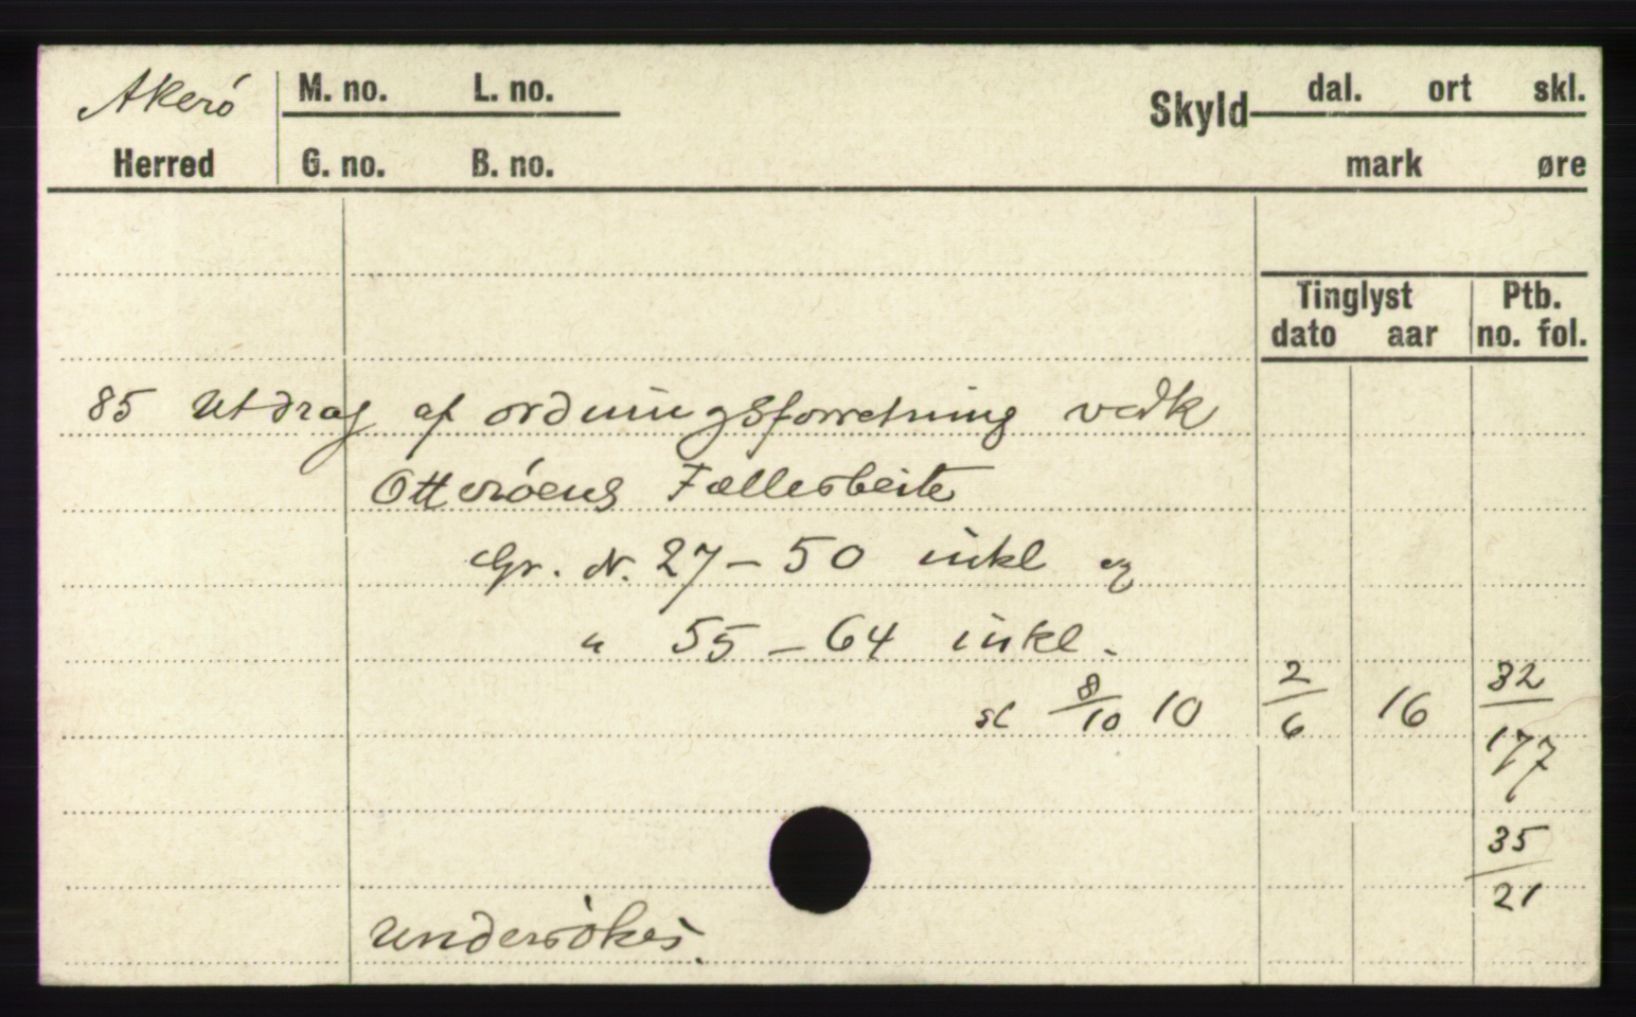 Akerö M. no. L. no. Skyld dal. ort skl.
Herred G. no. B. no. mark øre
Tinglyst Ptb.
dato aar no. fol.
85 Utdrag af ordningsforretning vedk
Otteröens Fællesbeite
Gr. N. 27 - 50 inkl og
" 55 - 64 inkl.
8/10 10 2/6 16 32/177
35/21
undersökes.